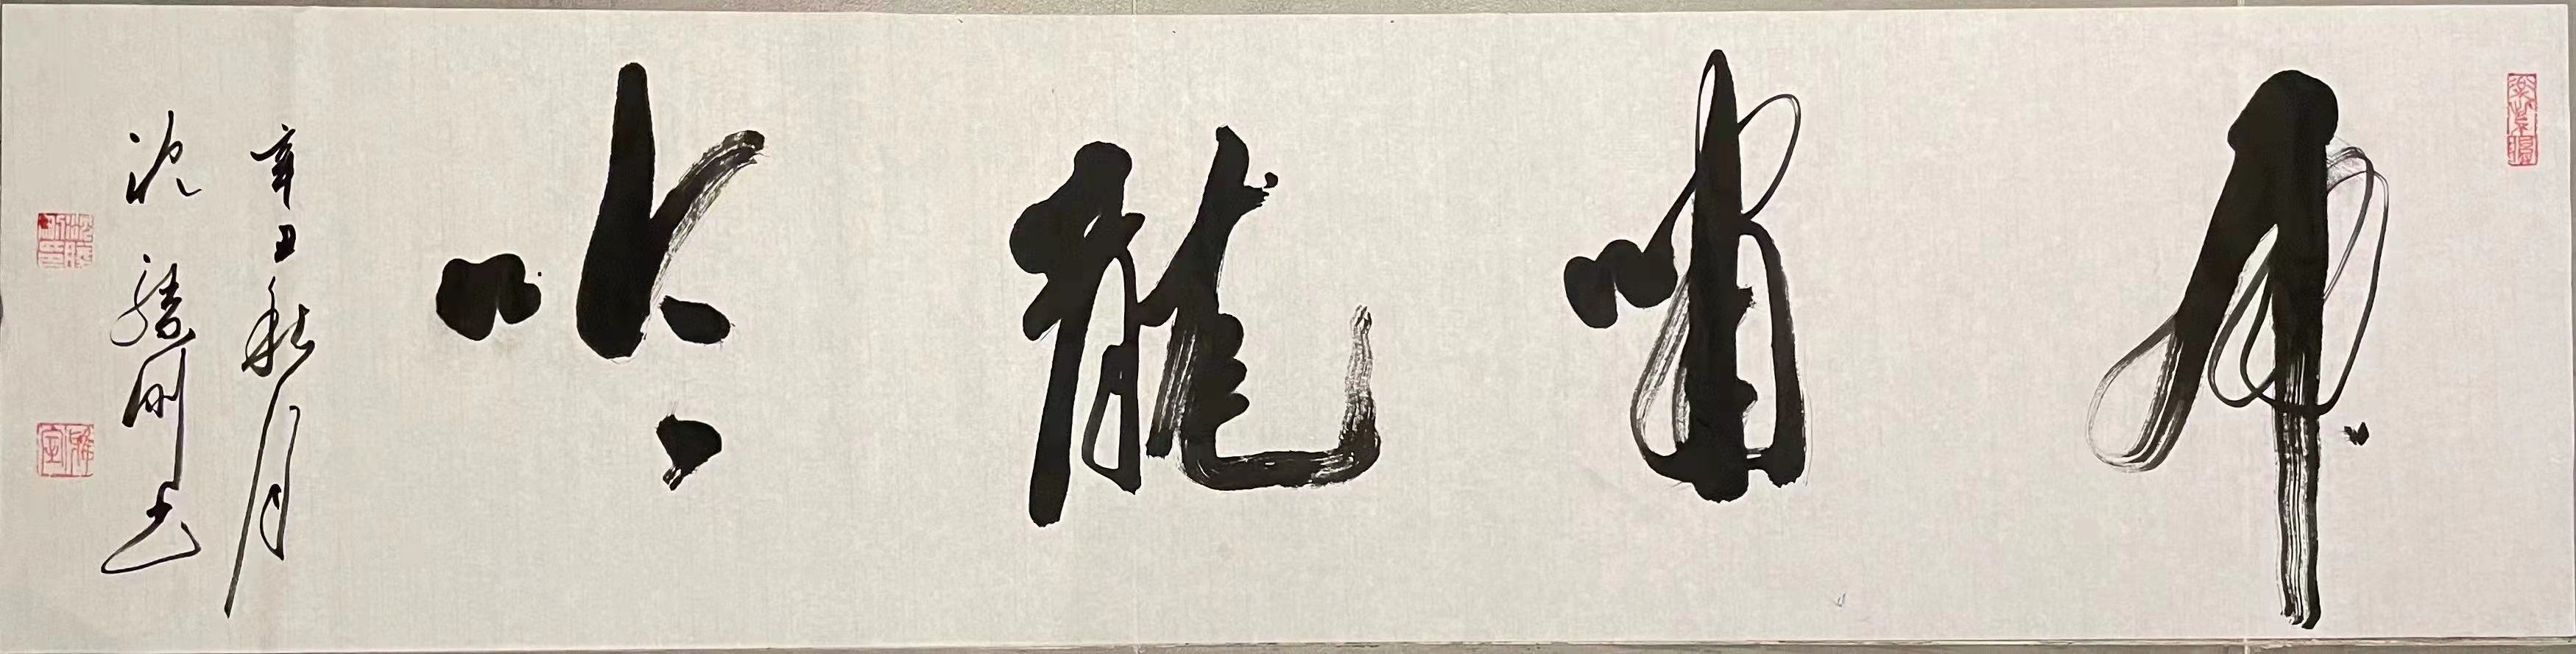 虎嘯龍吟
辛丑秋月
沈書